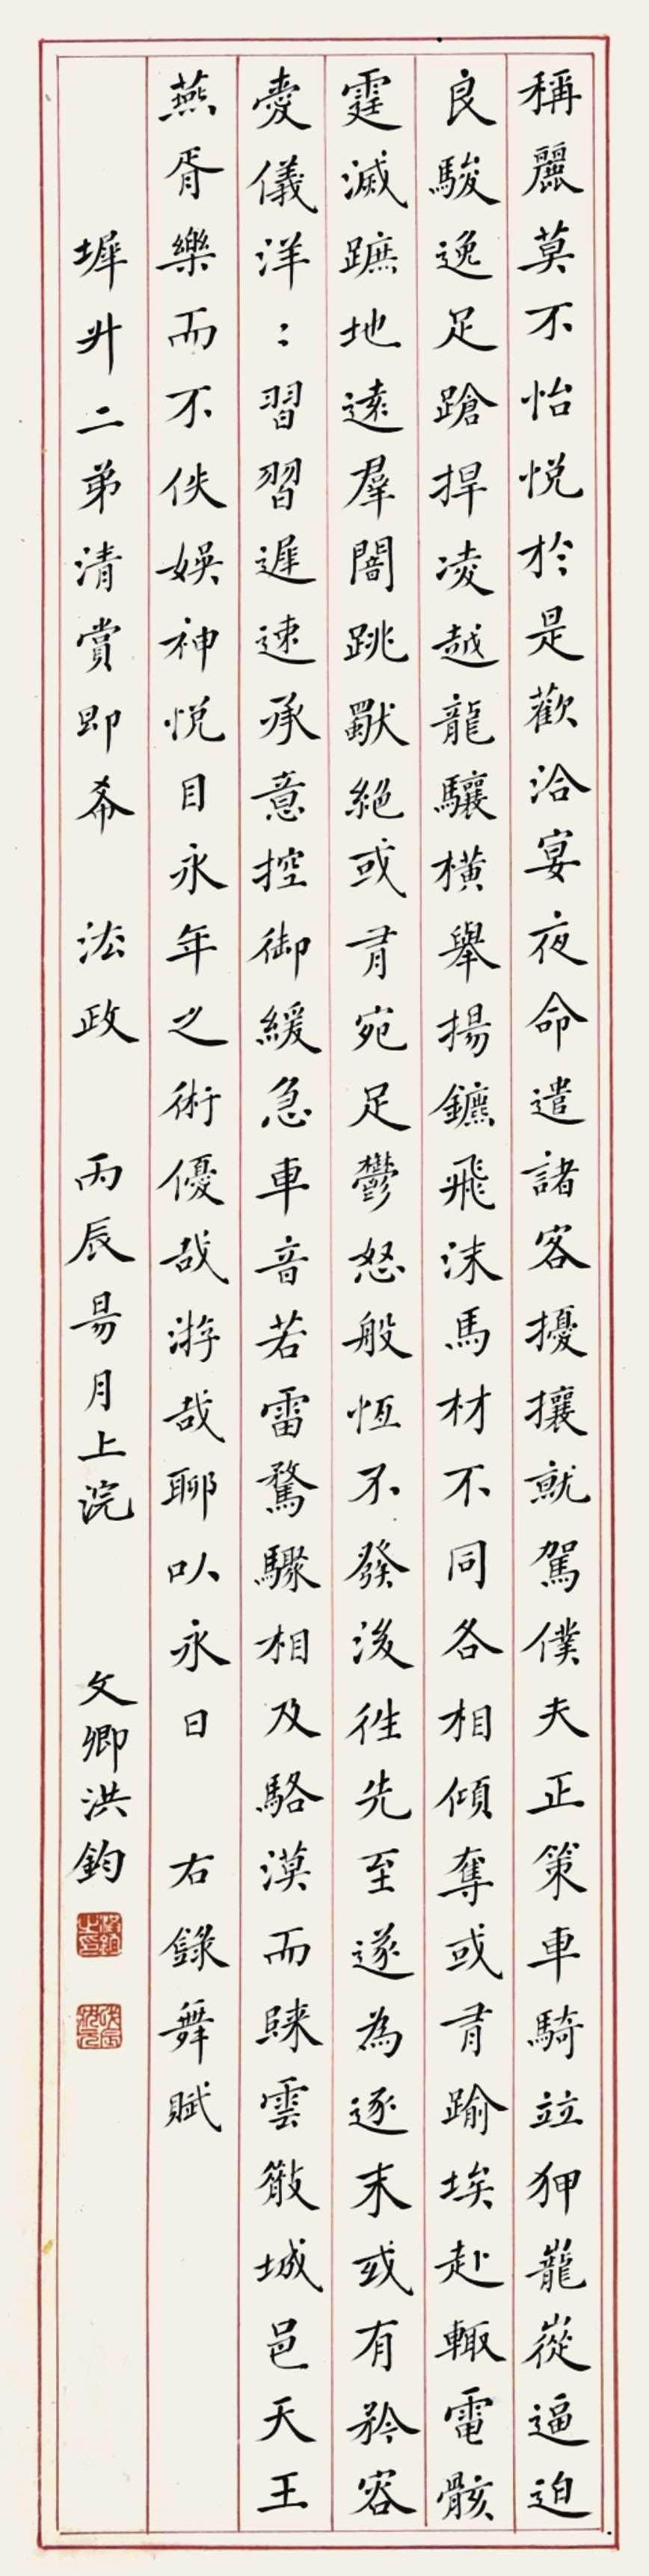 稱麗莫不怡悅於是歡洽宴夜命遣諸客擾攘就駕僕夫正策車騎竝狎巃嵸逼迫
良駿逸足蹌捍凌越龍驤橫舉揚鑣飛沫馬材不同各相傾奪或有踰埃赴轍電骸
霆滅蹠地遠羣闇跳獸絕或有宛足鬱怒般恆不發後往先至遂為逐末或有矜容
愛儀洋〻習習遲速承意控御緩急車音若雷騖驟相及駱漠而歸雲散城邑天王
燕胥樂而不佚娛神悅目永年之術優哉游哉聊以永日 右錄舞賦
墀升二弟清賞即希 法政 丙辰昜月上浣 文卿洪鈞